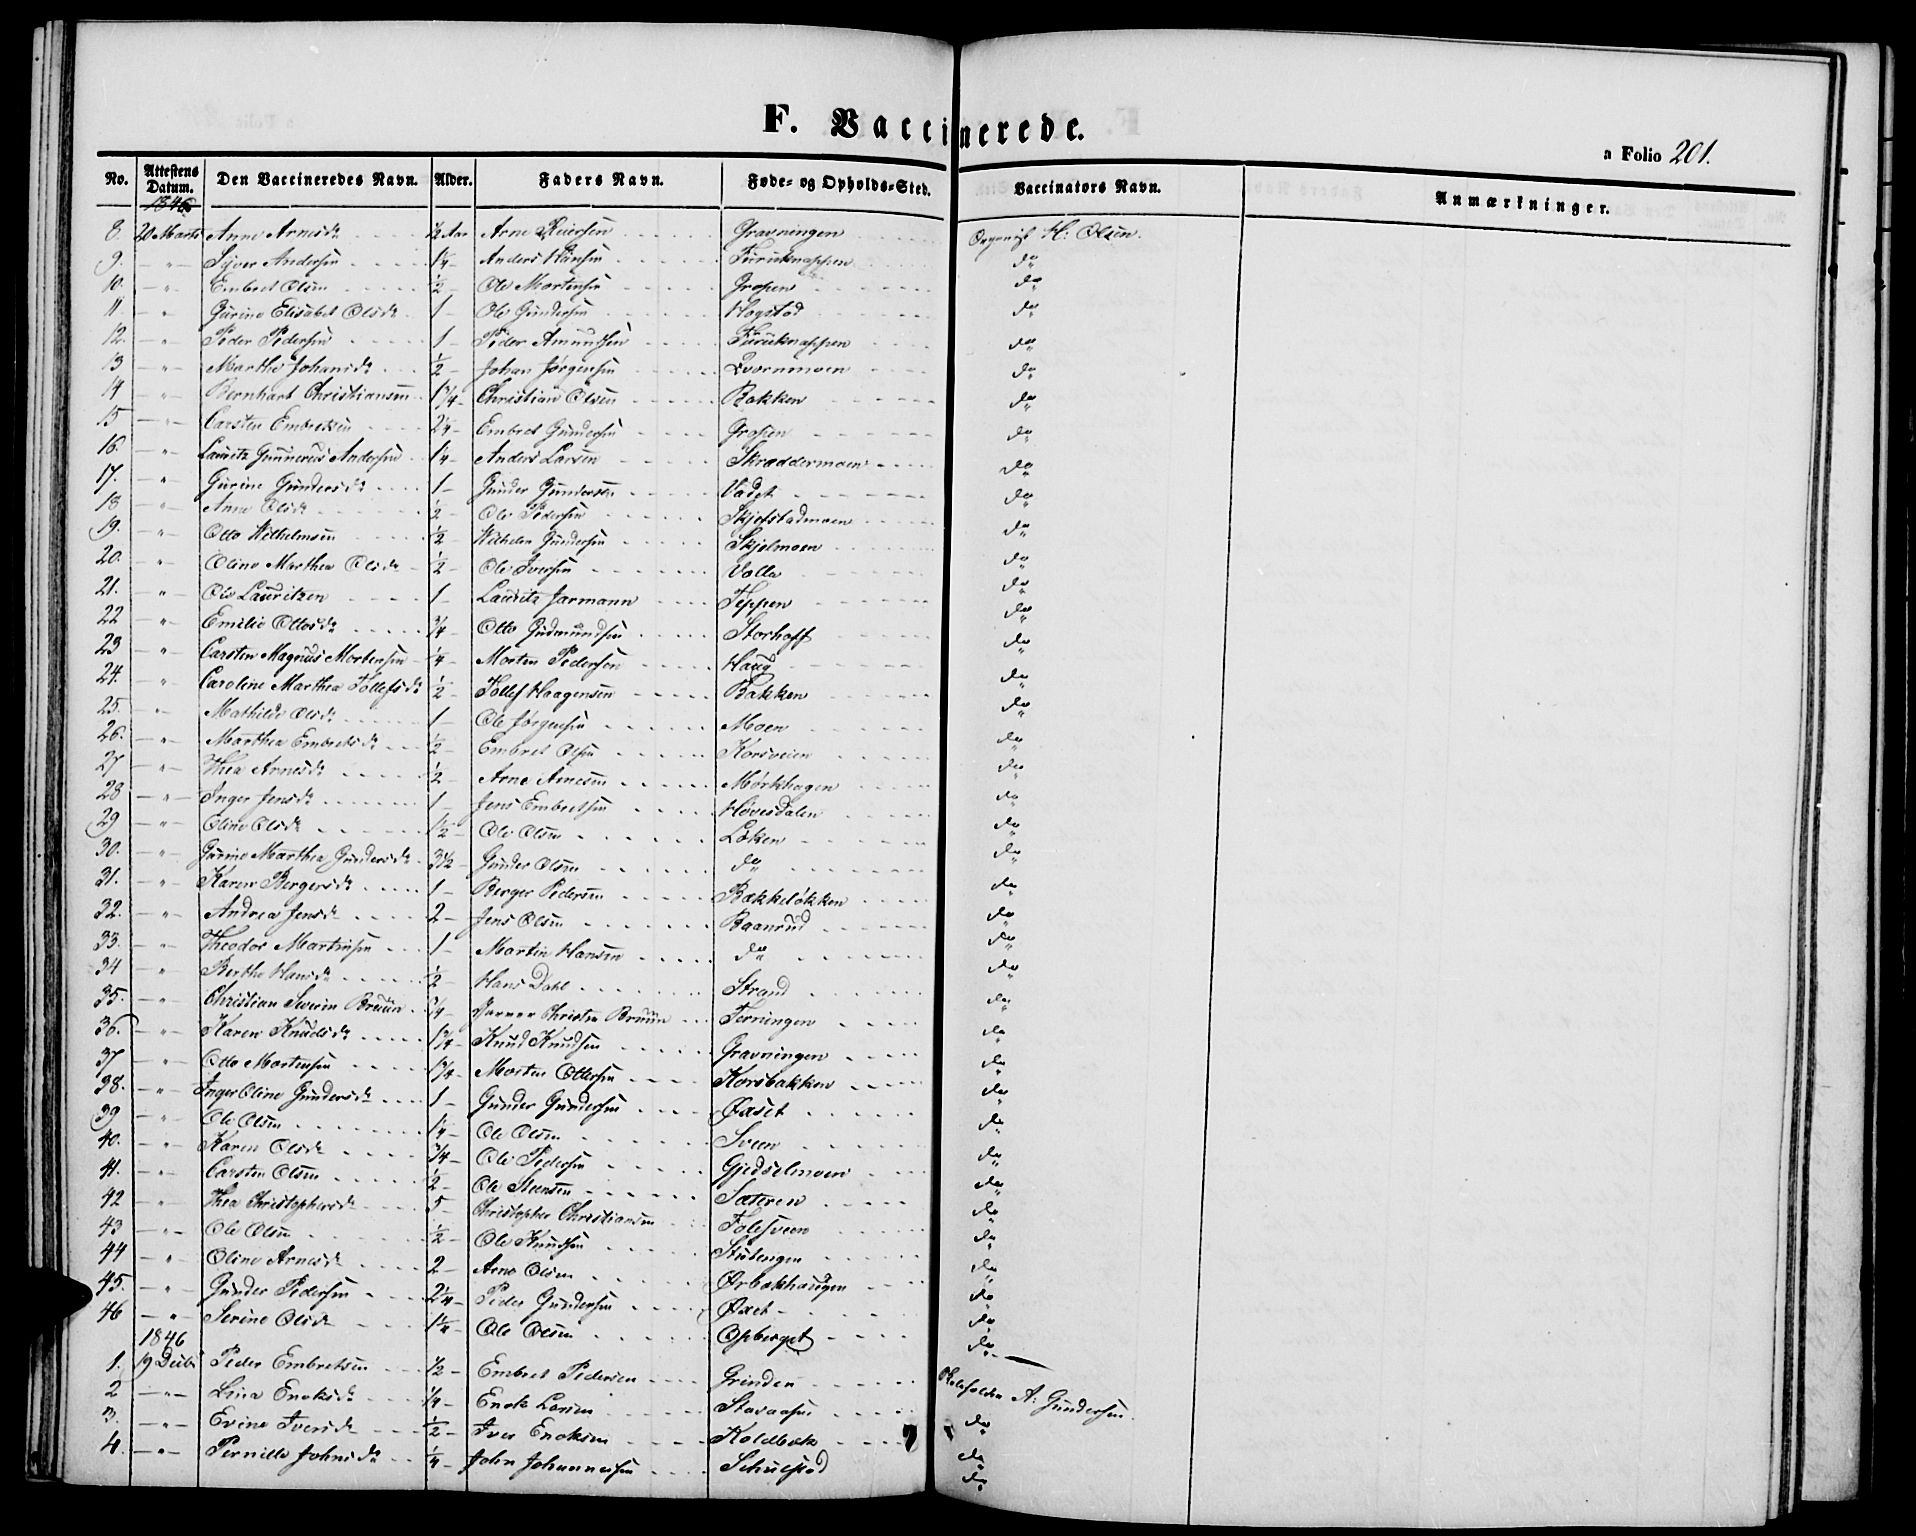 F. Vaccinerede.
a Folio 201.
No. Attestens Datum. Den Vaccineredes Navn. Alder. Faders Navn. Føde- og Opholds-Sted. Vaccinators Navn. Anmærkninger.
1846
8. 20 Marts Anne Arnesdr ½ Aar Arne Reiersen Gravningen Organist H: Olsen.
9. — " — Syver Andersen 1¼ — Anders Hansen Furuknappen do
10. — " Embret Olsen ½ — Ole Mortensen Gropen do
11. — " Gurine Elisabet Olsdr. 1 — Ole Gundersen Hogstad do
12. — " Peder Pedersen 1 — Peder Amundsen Furuknappen do
13 — " Marthe Johansdr ½ — Johan Jørgensen Qvernmoen do
14 — " — Bernhart Christiansen 1¾ — Christian Olsen Bakken do
15 — " — Carsten Embretsen 2¼ — Embret Gundersen Gropen do
16. — " Lauritz Gunnerius Andersen 1¼ — Anders Larsen Skræddermoen do
17. — " Gurine Gundersdr 1 — Gunder Gundersen Vadet do
18 — " Anne Olsdr ½ — Ole Pedersen Skjefstadmoen do
19. — " Otto Wilhelmsen ½ — Wilhelm Gundersen Skjelmoen do
20. — " Oline Marthea Olsdr ½ — Ole Iversen Volla do
21. — " — Ole Lauritzen 1 — Lauritz Jarmann Teppen do
22 — " Emilie Ottosdr ¾ — Otto Gudmundsen Storhoff do
23 — " Carsten Magnus Mortensen ¼ — Morten Pedersen Haug do
24. — " Caroline Marthea Tollefsdr ½ — Tollef Haagensen Bakken do
25. — " — Mathilde Olsdr 1 — Ole Jørgensen Moen do
26. — " — Marthea Embretsdr ½ — Embret Olsen Korsveien do
27 — " — Thea Arnesdr ½ — Arne Arnesen Mørkhagen do
28 — " — Inger Jensdr 1 — Jens Embretsen Hovesdalen do
29 — " — Oline Olsdr 1½ — Ole Olsen Løken do
30. — " — Gurine Marthea Gundersdr 3½ — Gunder Olsen do do
31. — " — Karen Bergersdr 1 — Berger Pedersen Bækkeløkken do
32. — " — Andrea Jensdr 2 — Jens Olsen Baanrud do
33. — " — Theodor Martinsen 1 — Martin Hansen do do
34 — " Berthe Hansdr ½ — Hans Dahl Strand do
35. — " — Christian Severin Bruun ¾ — Christin Bruun Terningen do
36. — " — Karen Knudsdr 1¾ — Knud Knudsen Gravningen do
37 — " — Otto Mortensen 1¾ — Morten Ottersen Korsbakken do
38. — " — Inger Oline Gundersdr 1 — Gunder Gundersen Øxset do
39 — " — Ole Olsen 1¼ — Ole Olsen Sveen do
40. — " — Karen Olsdr ¾ — Ole Pedersen Gjedselmoen do
41. — " — Carsten Olsen ½ — Ole Steensen Sæteren do
42 — " — Thea Christophersdr 5 — Christopher Christiansen Folesveen do
43 — " — Ole Olsen ½ — Ole Knudsen Stubengen do
44 — " Oline Arnesdr 2 — Arne Olsen Ørbækhaugen do
45. — " — Gunder Pedersen 2¼ — Peder Gundersen Øxet do
46 — " — Serine Olsdr 1¼ — Ole Olsen Opberget do
1846
do
1. 19 Decbr Peder Embretsen ½ — Embret Pedersen Grinden A: Gundersen.
2 — " — Lina Enoksdr ¼ — Enok Larsen Stavaasen do
3. — " — Evine Iversdr ½ — Iver Enoksen Koldbæk do
4. — " — Pernille Johnsdr ¼ — John Johannesen do